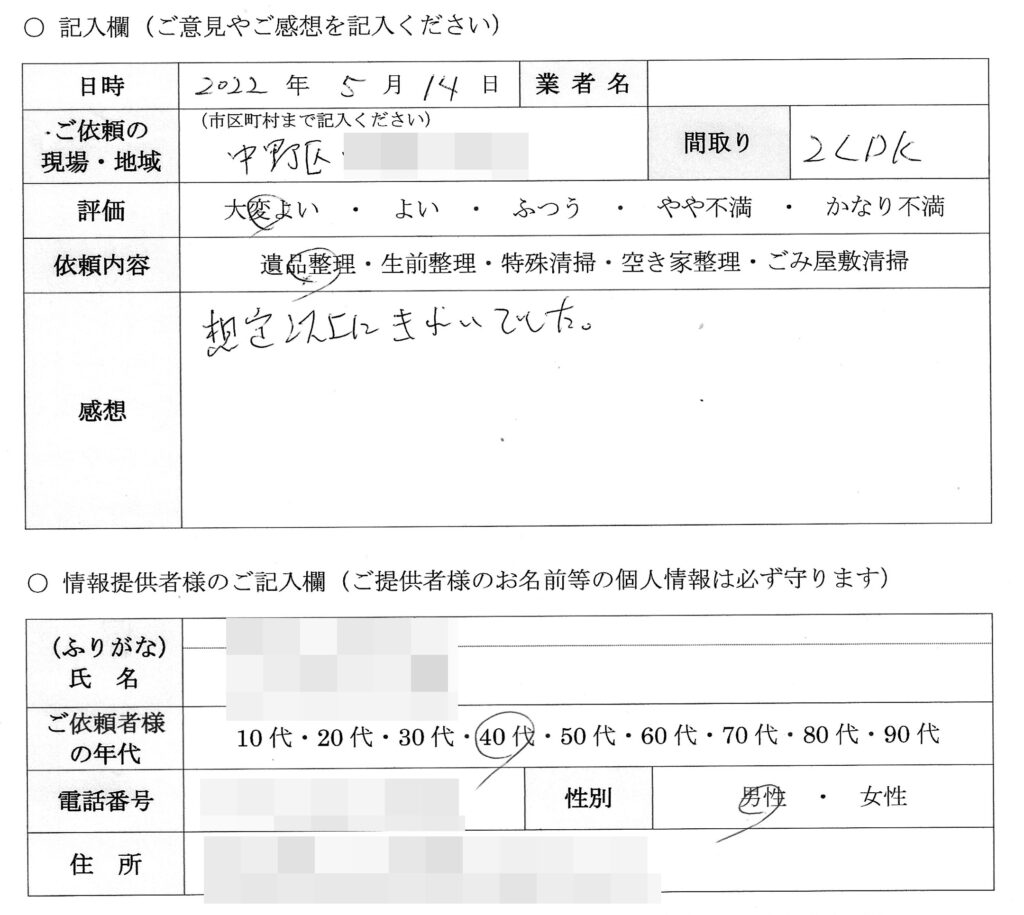 ○ 記入欄（ご意見やご感想を記入ください）
日時 2022 年 5 月 14 日 業者名
ご依頼の現場・地域 （市区町村まで記入ください） 中野区 間取り 2LDK
評価 大変よい ・ よい ・ ふつう ・ やや不満 ・ かなり不満
依頼内容 遺品整理・生前整理・特殊清掃・空き家整理・ごみ屋敷清掃
感想 想定以上にきれいでした。
○ 情報提供者様のご記入欄（ご提供者様のお名前等の個人情報は必ず守ります）
（ふりがな）
氏 名
ご依頼者様の年代 10代・20代・30代・40代・50代・60代・70代・80代・90代
電話番号 性別 男性 ・ 女性
住 所